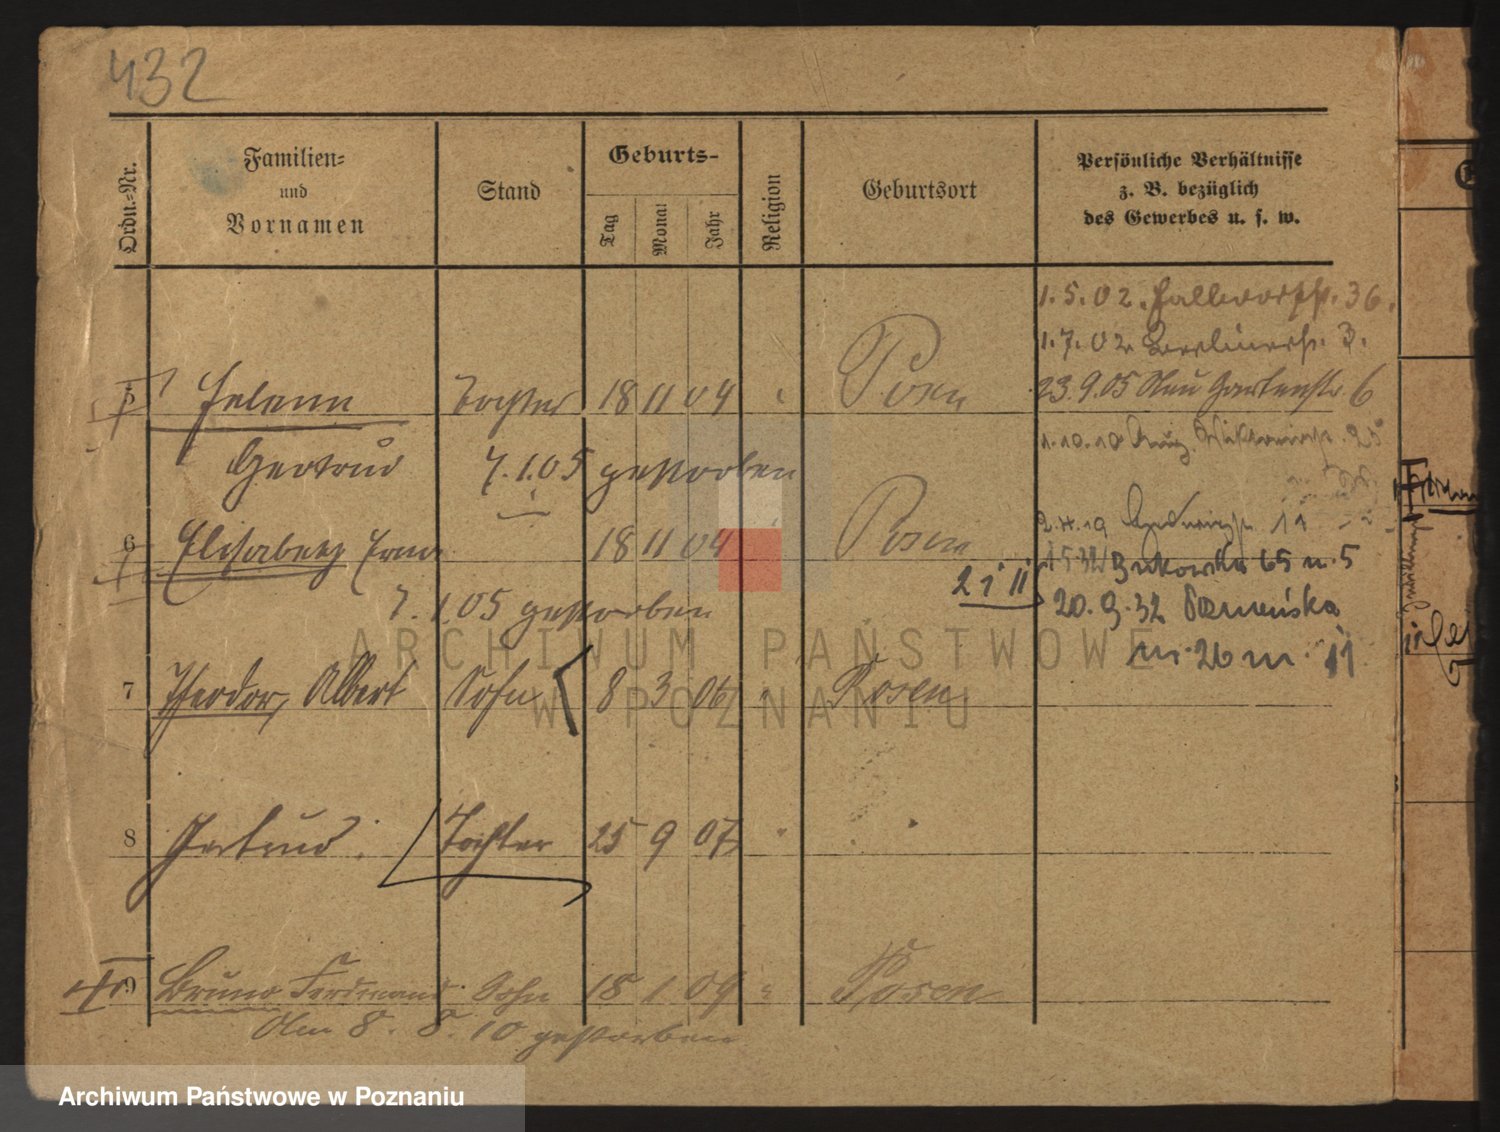 432
Ordn.-Nr.
Familien-
und
Vornamen
Stand
Geburts-
Tag
Monat
Jahr
Religion
Geburtsort
Persönliche Verhältnisse
z. B. bezüglich
des Gewerbes u. s. w.
1.5.02. 36.
1.7.02 Berlinerstr. 3.
5 Helene Tochter 18 11 04 Posen
23.9.05 Neu Gartenstr. 6
Gertrud 7.1.05 gestorben
1.10.10 Aug. Viktoriastr. 25
6 Elisabeth Erna 18 11 04 Posen
11
15 32 Bukowska 65 m. 5
7.1.05 gestorben
20.9.32
m. 26 m. 11
7 Theodor, Albert Sohn 8 3 06 Posen
8 Gertrud. Tochter 25 9 07
9 Bruno Ferdinand Sohn 18 1 09 Posen
Am 8. 8. 10 gestorben
ARCHIWUM PAŃSTWOWE
W POZNANIU
Archiwum Państwowe w Poznaniu